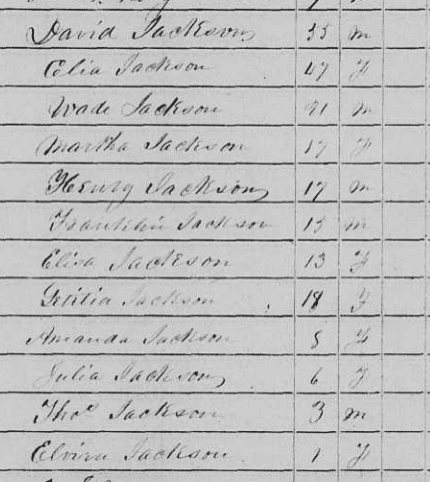 David Jackson 55 m
Elia Jackson 47 F
Wade Jackson 21 m
Martha Jackson 17 F
Henry Jackson 17 m
Franklin Jackson 15 m
Elisa Jackson 13 F
Jackson 18 F
Amanda Jackson 8 F
Julia Jackson 6 F
Thos Jackson 3 m
Elvira Jackson 1 F